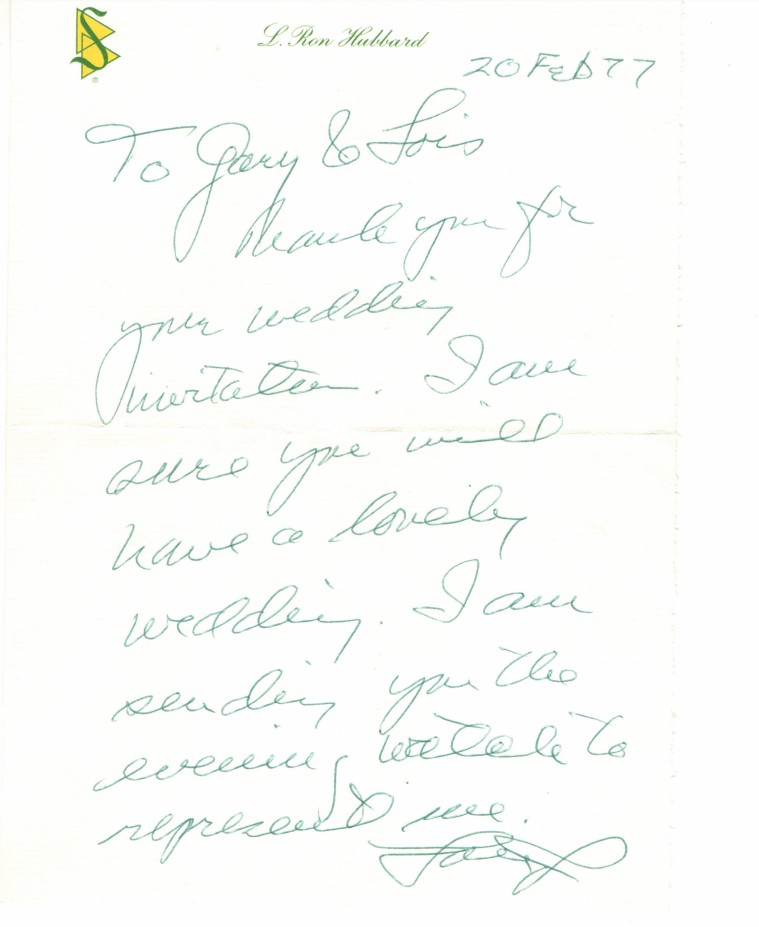 L. Ron Hubbard
20 FEB 77
To Gary & Lois
Thank you for
your wedding
invitation. I am
sure you will
have a lovely
wedding. I am
sending you the
evening to
represent me.